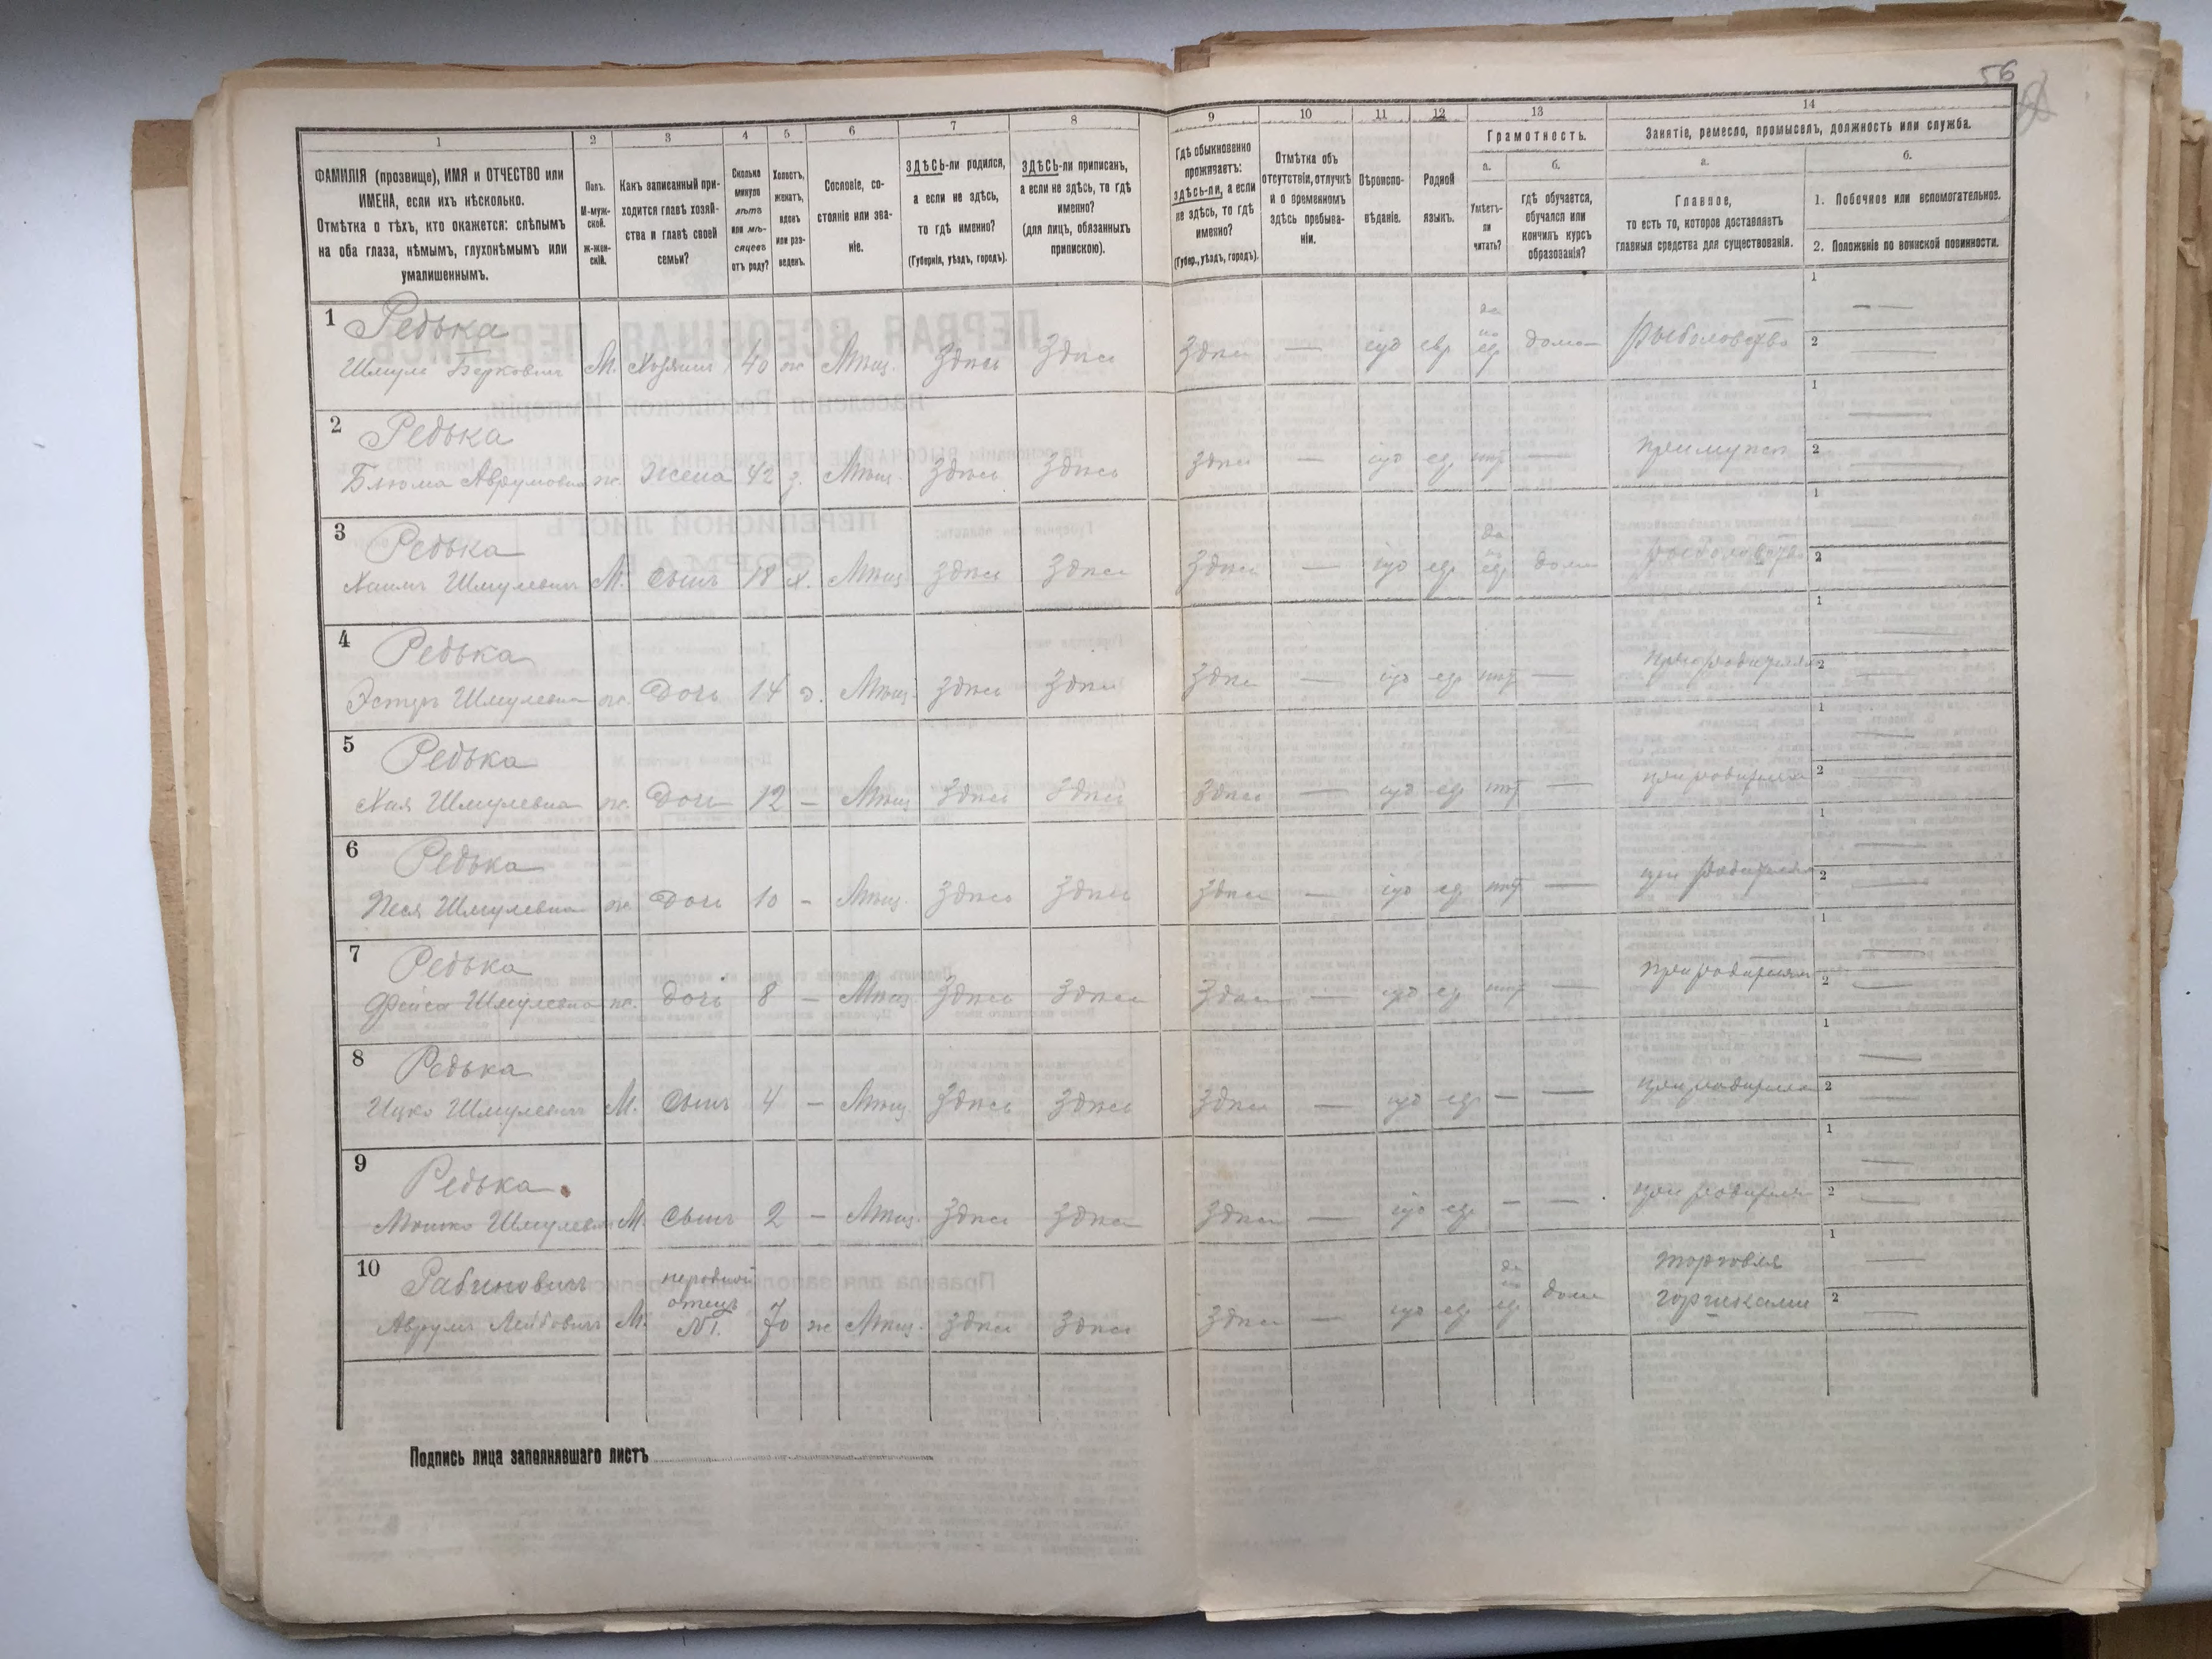 56
1
ФАМИЛІЯ (прозвище), ИМЯ и ОТЧЕСТВО или
ИМЕНА, если ихъ нѣсколько.
Отмѣтка о тѣхъ, кто окажется: слѣпымъ
на оба глаза, нѣмымъ, глухонѣмымъ или
умалишеннымъ.
2
Полъ.
М-муж-
ской.
Ж-жен-
скій.
3
Какъ записанный при-
ходится главѣ хозяй-
ства и главѣ своей
семьи?
4
Сколько
минуло
лѣтъ
или мѣ-
сяцевъ
отъ роду?
5
Холостъ,
женатъ,
вдовъ
или раз-
веденъ.
6
Сословіе, со-
стояніе или зва-
ніе.
7
ЗДѢСЬ-ли родился,
а если не здѣсь,
то гдѣ именно?
(Губернія, уѣздъ, городъ).
8
ЗДѢСЬ-ли приписанъ,
а если не здѣсь, то гдѣ
именно?
(для лицъ, обязанныхъ
припискою).
9
Гдѣ обыкновенно
проживаетъ:
здѣсь-ли, а если
не здѣсь, то гдѣ
именно?
(Губер., уѣздъ, городъ).
10
Отмѣтка объ
отсутствіи, отлучкѣ
и о временномъ
здѣсь пребыва-
ніи.
11
Вѣроиспо-
вѣданіе.
12
Родной
языкъ.
13
Грамотность.
а.
Умѣетъ-
ли
читать?
б.
гдѣ обучается,
обучался или
кончилъ курсъ
образованія?
14
Занятіе, ремесло, промыселъ, должность или служба.
а.
Главное,
то есть то, которое доставляетъ
главныя средства для существованія.
б.
1. Побочное или вспомогательное.
2. Положеніе по воинской повинности.
1 Редька
Шмуль Берковичъ М. Хозяинъ 40 ж Мѣщ. Здѣсь Здѣсь Здѣсь — іуд евр да по ев дома рыболовство
1 —
2 —
2 Редька
Блюма Аврумовна ж. Жена 42 з. Мѣщ. Здѣсь Здѣсь Здѣсь — іуд ев нѣт — при мужѣ
1 —
2 —
3 Редька
Хаимъ Шмулевичъ М. Сынъ 18 х. Мѣщ. Здѣсь Здѣсь Здѣсь — іуд ев да по ев дома рыболовство
1 —
2 —
4 Редька
Эстеръ Шмулевна ж. Дочь 14 д. Мѣщ. Здѣсь Здѣсь Здѣсь — іуд ев нѣт — при родителях
1 —
2 —
5 Редька
Хая Шмулевна ж. Дочь 12 — Мѣщ. Здѣсь Здѣсь Здѣсь — іуд ев нѣт — при родителях
1 —
2 —
6 Редька
Песя Шмулевна ж. Дочь 10 — Мѣщ. Здѣсь Здѣсь Здѣсь — іуд ев нѣт — при родителях
1 —
2 —
7 Редька
Шмулевна ж. Дочь 8 — Мѣщ. Здѣсь Здѣсь Здѣсь — іуд ев нѣт — при родителях
1 —
2 —
8 Редька
Ицко Шмулевичъ М. Сынъ 4 — Мѣщ. Здѣсь Здѣсь Здѣсь — іуд ев — — при родителях
1 —
2 —
9 Редька
Мошко Шмулевич М. Сынъ 2 — Мѣщ. Здѣсь Здѣсь Здѣсь — іуд ев — — при родителях
1 —
2 —
10 Рабиновичъ
Аврумъ Лейбовичъ М. неродной отецъ №1. 70 ж Мѣщ. Здѣсь Здѣсь Здѣсь — іуд ев да по ев дома торговля горшками
1 —
2 —
Подпись лица заполнявшаго листъ